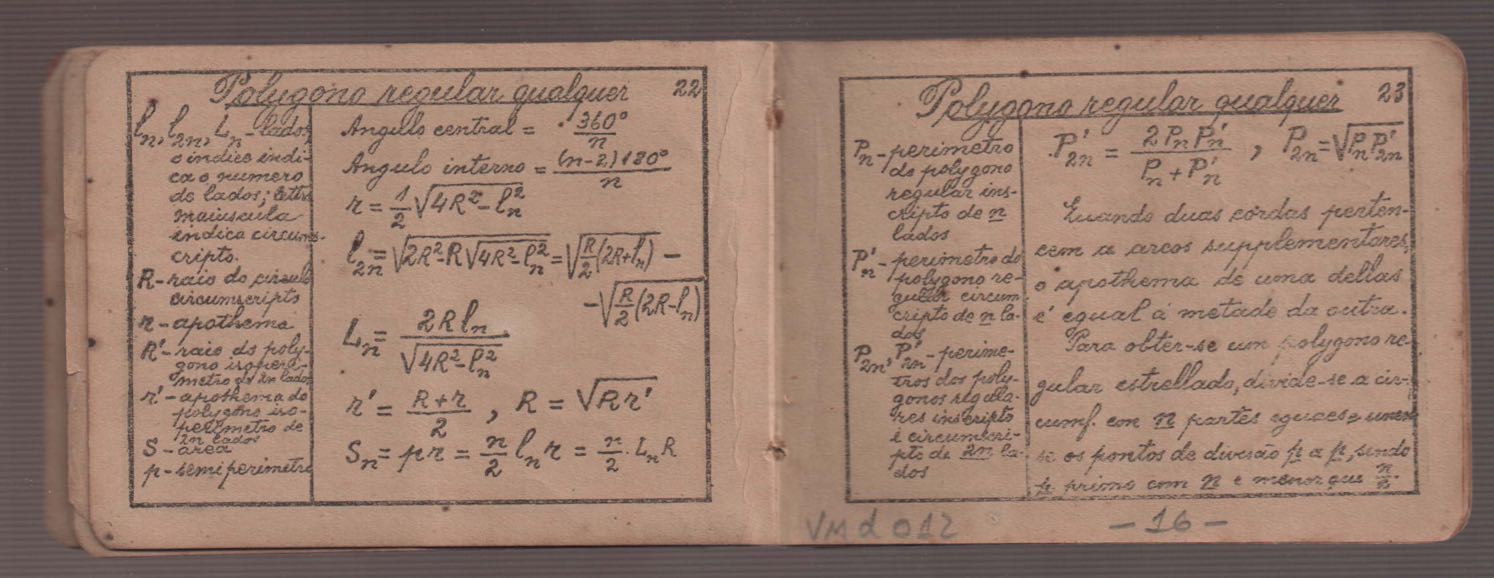 Polygono regular qualquer 22
ln, l2n, Ln - lados
o indice indi-
ca o numero
de lados; lettra
maiuscula
indica circums-
cripto.
R - raio do circulo
circumscripto
r - apothema
R' - raio do poly-
gono isoperi-
metro de 2n lados
r' - apothema do
polygono iso-
perimetro de
2n lados
S - area
p - semiperimetro
Angulo central = 360°/n
Angulo interno = (n-2)180°/n
r = 1/2 √(4R²-ln²)
l2n = √(2R²-R√(4R²-ln²)) = √(R/2(2R+ln)) -
-√(R/2(2R-ln))
Ln = 2Rln/√(4R²-ln²)
r' = (R+r)/2 , R = √(Rr')
Sn = pr = n/2 ln r = n/2 . Ln R
Polygono regular qualquer 23
Pn - perimetro
do polygono
regular ins-
cripto de n
lados
P'n - perimetro do
polygono re-
gular circum
cripto de n la-
dos
P2n, P'2n - perime-
tros dos poly-
gonos regula-
res inscripto
e circumscri-
pto de 2n la-
dos
P'2n = 2PnP'n/(Pn+P'n) , P2n = √(PnP'2n)
Quando duas cordas perten-
cem a arcos supplementares,
o apothema de uma dellas
é egual á metade da outra.
Para obter-se um polygono re-
gular estrellado, divide-se a cir-
cumf. em n partes eguaes e unem
se os pontos de divisão p a p, sendo
p primo com n e menor que
VMd012
- 16 -